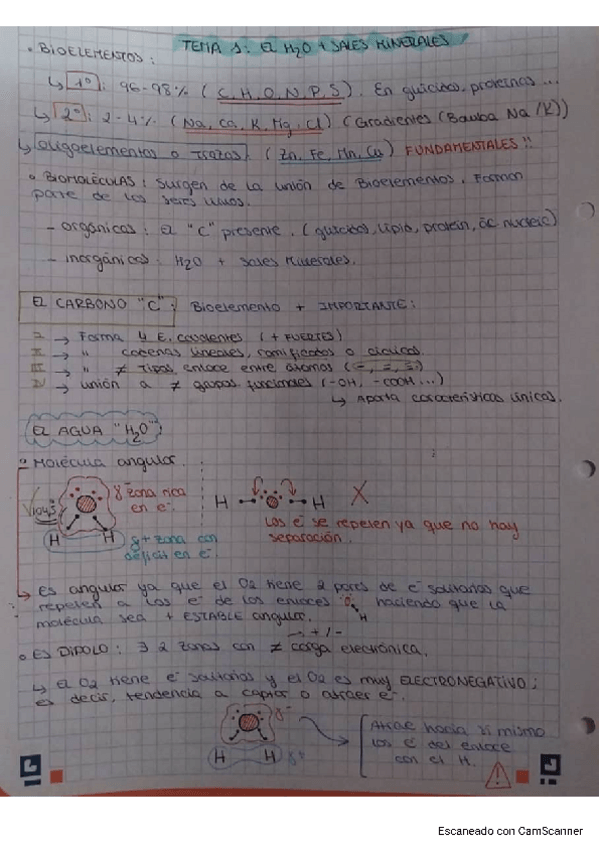 TEMA 1: EL H2O + SALES MINERALES
• BIOELEMENTOS:
↳ 1º: 96-98% (C, H, O, N, P, S). En glúcidos, proteínas...
↳ 2º: 2-4% (Na, Ca, K, Mg, Cl) (Gradientes (Bomba Na/K))
↳ Oligoelementos o Trazas, (Zn, Fe, Mn, Cu) FUNDAMENTALES!!
• BIOMOLÉCULAS: Surgen de la unión de Bioelementos. Forman
parte de los seres vivos.
- orgánicas: El "C" presente. (glúcidos, lípid, proteín, ác nucleic)
- inorgánicas: H2O + Sales Minerales.
EL CARBONO "C": Bioelemento + IMPORTANTE:
I → Forma 4 E. covalentes (+ FUERTES)
II → " cadenas lineales, ramificadas o cíclicas.
III → " ≠ Tipos enlace entre átomos (-, =, ≡)
IV → unión a ≠ grupos funcionales (-OH, -COOH...)
↳ Aporta características únicas.
EL AGUA "H2O":
• Molécula angular.
δ- zona rica
en e-
104,5
H H
δ+ zona con
déficit en e-
H O H X
Los e- se repelen ya que no hay
separación.
→ Es angular ya que el O2 tiene 2 pares de e- solitarios que
repelen a los e- de los enlaces O H haciendo que la
molécula sea + ESTABLE angular.
→ + / -
• ES DIPOLO: ∃ 2 zonas con ≠ carga electrónica.
↳ El O2 tiene e- solitarios y el O2 es muy ELECTRONEGATIVO;
es decir, tendencia a captar o atraer e-.
δ-
H H δ+
Atrae hacia sí mismo
los e- del enlace
con el H.
!
Escaneado con CamScanner